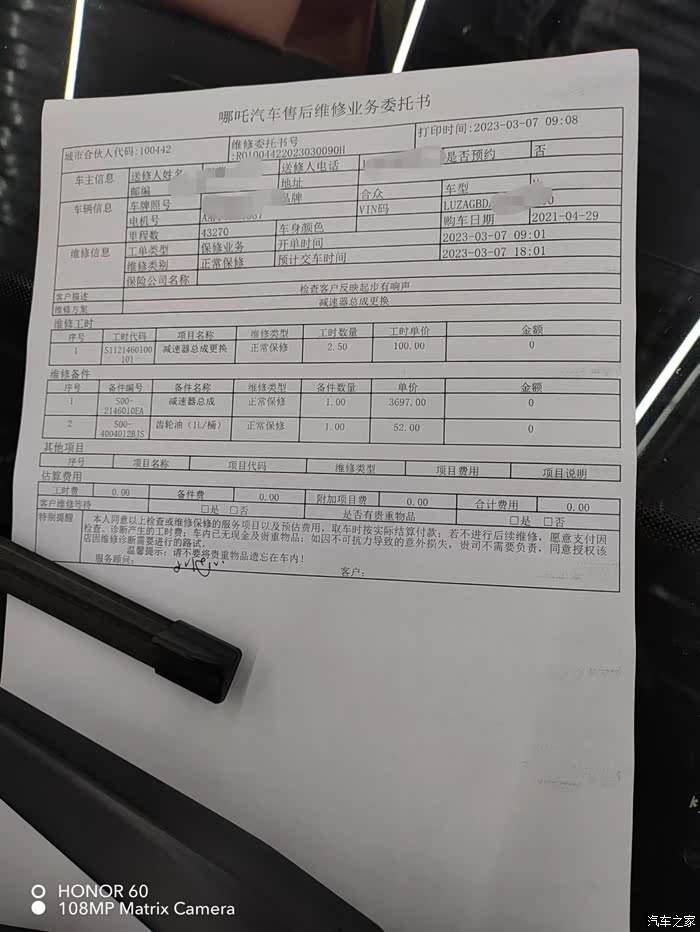 哪吒汽车售后维修业务委托书
城市合伙人代码:100442 维修委托书号:RO1004422023030090H 打印时间:2023-03-07 09:08
车主信息 送修人姓名 送修人电话 是否预约 否
邮编 地址
车辆信息 车牌照号 品牌 合众 车型
电机号 VIN码 LUZAGBD
里程数 43270 车身颜色 购车日期 2021-04-29
维修信息 工单类型 保修业务 开单时间 2023-03-07 09:01
维修类别 正常保修 预计交车时间 2023-03-07 18:01
保险公司名称
客户描述 检查客户反映起步有响声
维修方案 减速器总成更换
维修工时
序号 工时代码 项目名称 维修类型 工时数量 工时单价 金额
1 S1121460100101 减速器总成更换 正常保修 2.50 100.00 0
维修备件
序号 备件编号 备件名称 维修类型 备件数量 单价 金额
1 S00-2146010EA 减速器总成 正常保修 1.00 3697.00 0
2 S00-4004012BJS 齿轮油（1L/桶） 正常保修 1.00 52.00 0
其他项目
序号 项目名称 项目代码 维修类型 项目费用 项目说明
估算费用
工时费 0.00 备件费 0.00 附加项目费 0.00 合计费用 0.00
客户维修等待 □是 □否 是否有贵重物品 □是 □否
特别提醒 本人同意以上检查或维修保修的服务项目以及预估费用，取车时按实际结算付款；若不进行后续维修，愿意支付因
检查、诊断产生的工时费；车内已无现金及贵重物品；如因不可抗力导致的意外损失，贵司不需要负责，同意授权该
店因维修诊断需要进行的路试。
温馨提示：请不要将贵重物品遗忘在车内！
服务顾问： 客户：
HONOR 60
108MP Matrix Camera
汽车之家